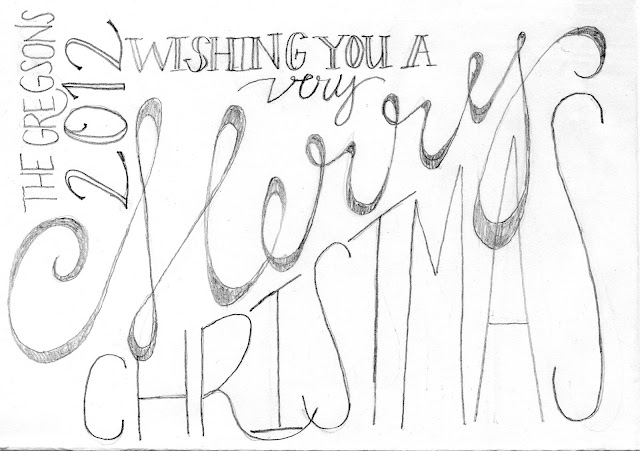 THE GREGSONS
2012
WISHING YOU A
very
Merry
CHRISTMAS